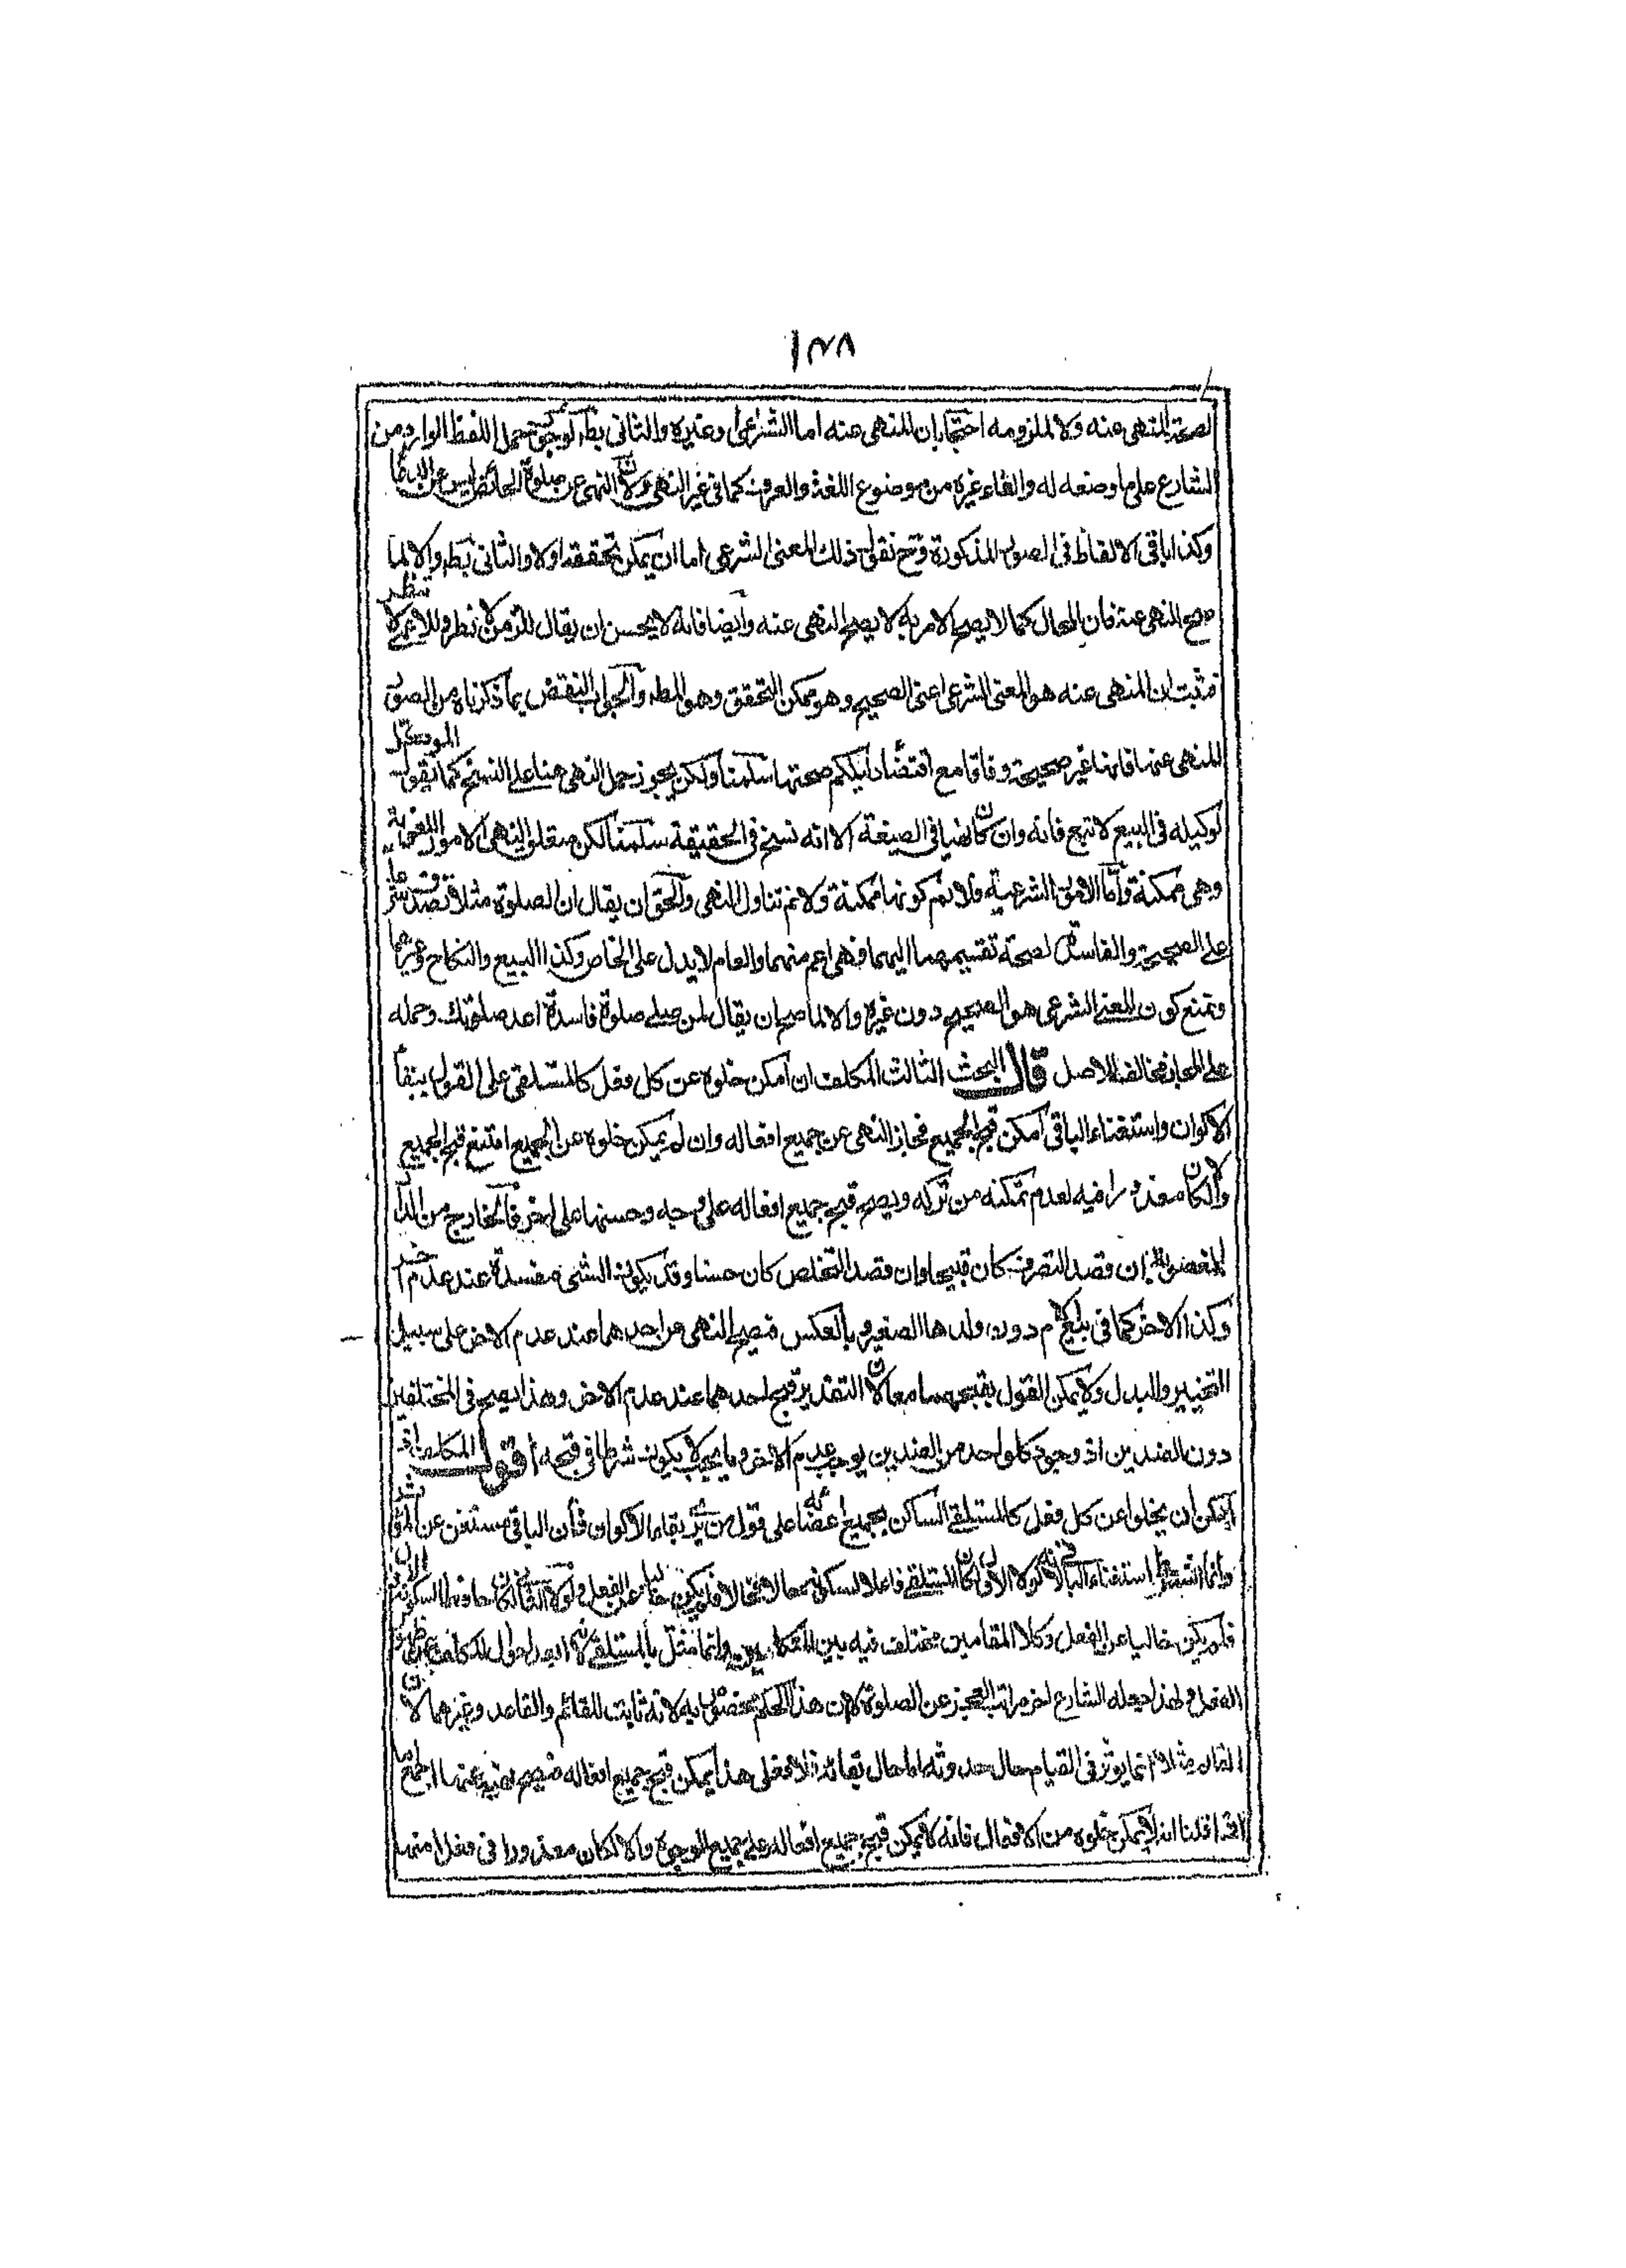 ١٣٨
لصحة المنهى عنه ولا ملزومه احتجا بان المنهى عنه اما الشرعى او غيره والثانى بط لوجوب حمل اللفظ الوارد من
الشارع على ما وضعه له والغاء غيره من موضوع اللغة والعرف كما فى غير النهى ولان النهى عن صلوة الحائض ليس عن الدعا
وكذا باقى الالفاظ فى الصور المذكورة وح نقول ذلك المعنى الشرعى اما ان يمكن تحققه اولا والثانى بط والا لما
صح النهى عنه فان المحال كما لا يصح الامر به لا يصح النهى عنه وايضا فانه لا يحسن ان يقال للزمن لا تطر وللاعمى لا تنظر
فثبت ان المنهى عنه هو المعنى الشرعى اعنى الصحيح وهو ممكن التحقق وهو المط والجواب النقض بما ذكرناه من الصور
المنهى عنها فانها غير صحيحة وفاقا مع اقتضاء دليلكم صحتها سلمنا ولكن يجوز حمل النهى هنا على النسخ كما يقول الموكل
لوكيله فى البيع لا تبع فانه وان كان نهيا فى الصيغة الا انه نسخ فى الحقيقة سلمنا لكن متعلق النهى الامور اللغوية
وهى ممكنة واما الامور الشرعية فلا نم كونها ممكنة ولا نم تناول النهى والحق ان يقال ان الصلوة مثلا تصدق شرعا
على الصحيحة والفاسدة لصحة تقسيمها اليهما فهى اعم منهما والعام لا يدل على الخاص وكذا البيع والنكاح وغيرهما
ونمنع كون المعنى الشرعى هو الصحيح دون غيره والا لما صح ان يقال لمن صلى صلوة فاسدة اعد صلوتك وحمله
على المجاز مخالف للاصل قال البحث الثالث المكلف ان امكن خلوه عن كل فعل كالمستلقى على القول ببقاء
الاكوان واستغناء الباقى امكن قبح الجميع فجاز النهى عن جميع افعاله وان لم يمكن خلوه عن الجميع امتنع قبح الجميع
والا لكان معذورا فيه لعدم تمكنه من تركه ويصح قبح جميع افعاله على وجه وحسنها على اخر فالخارج من الدار
المغصوبة ان قصد التصرف كان قبيحا وان قصد التخلص كان حسنا وقد يكون الشئ مفسدة عند عدم اخر
وكذا الاخر كما فى بيع الام دون ولدها الصغير وبالعكس فيصح النهى عن احدهما عند عدم الاخر على سبيل
التخيير والبدل ولا يمكن القول بقبحهما معا لان التقدير قبح احدهما عند عدم الاخر وهذا يصح فى المختلفين
دون الضدين اذ وجود كل واحد من الضدين يوجب عدم الاخر وما يجب لا يكون شرطا فى قبحه اقول المكلف اذ
امكن ان يخلوا عن كل فعل كالمستلقى الساكن بجميع اعضائه على قول من يرى بقاء الاكوان وان الباقى مستغن عن المؤثر
وانما اشترط استغناء الباقى لانه لولا الاول لكان المستلقى فاعلا للسكون حالا فحالا فلم يكن خاليا عن الفعل ولولا الثانى لكان حافظا للسكون
فلم يكن خاليا عن الفعل وكلا المقامين مختلف فيه بين المتكلمين وانما مثل بالمستلقى لانه ابعد احوال المكلف عن
الفعل ولهذا جعله الشارع اخر مراتب العجز عن الصلوة لان هذا الحكم مختص به لانه ثابت للقائم والقاعد وغيرهما لان
القادر مثلا انما يؤثر فى القيام حال حدوثه اما حال بقائه فلا فعلى هذا يمكن قبح جميع افعاله فيصح نهيه عنها اجمع اما
اذا قلنا انه لا يمكن خلوه من الافعال فانه لا يمكن قبح جميع افعاله على جميع الوجوه والا لكان معذورا فى فعل منها